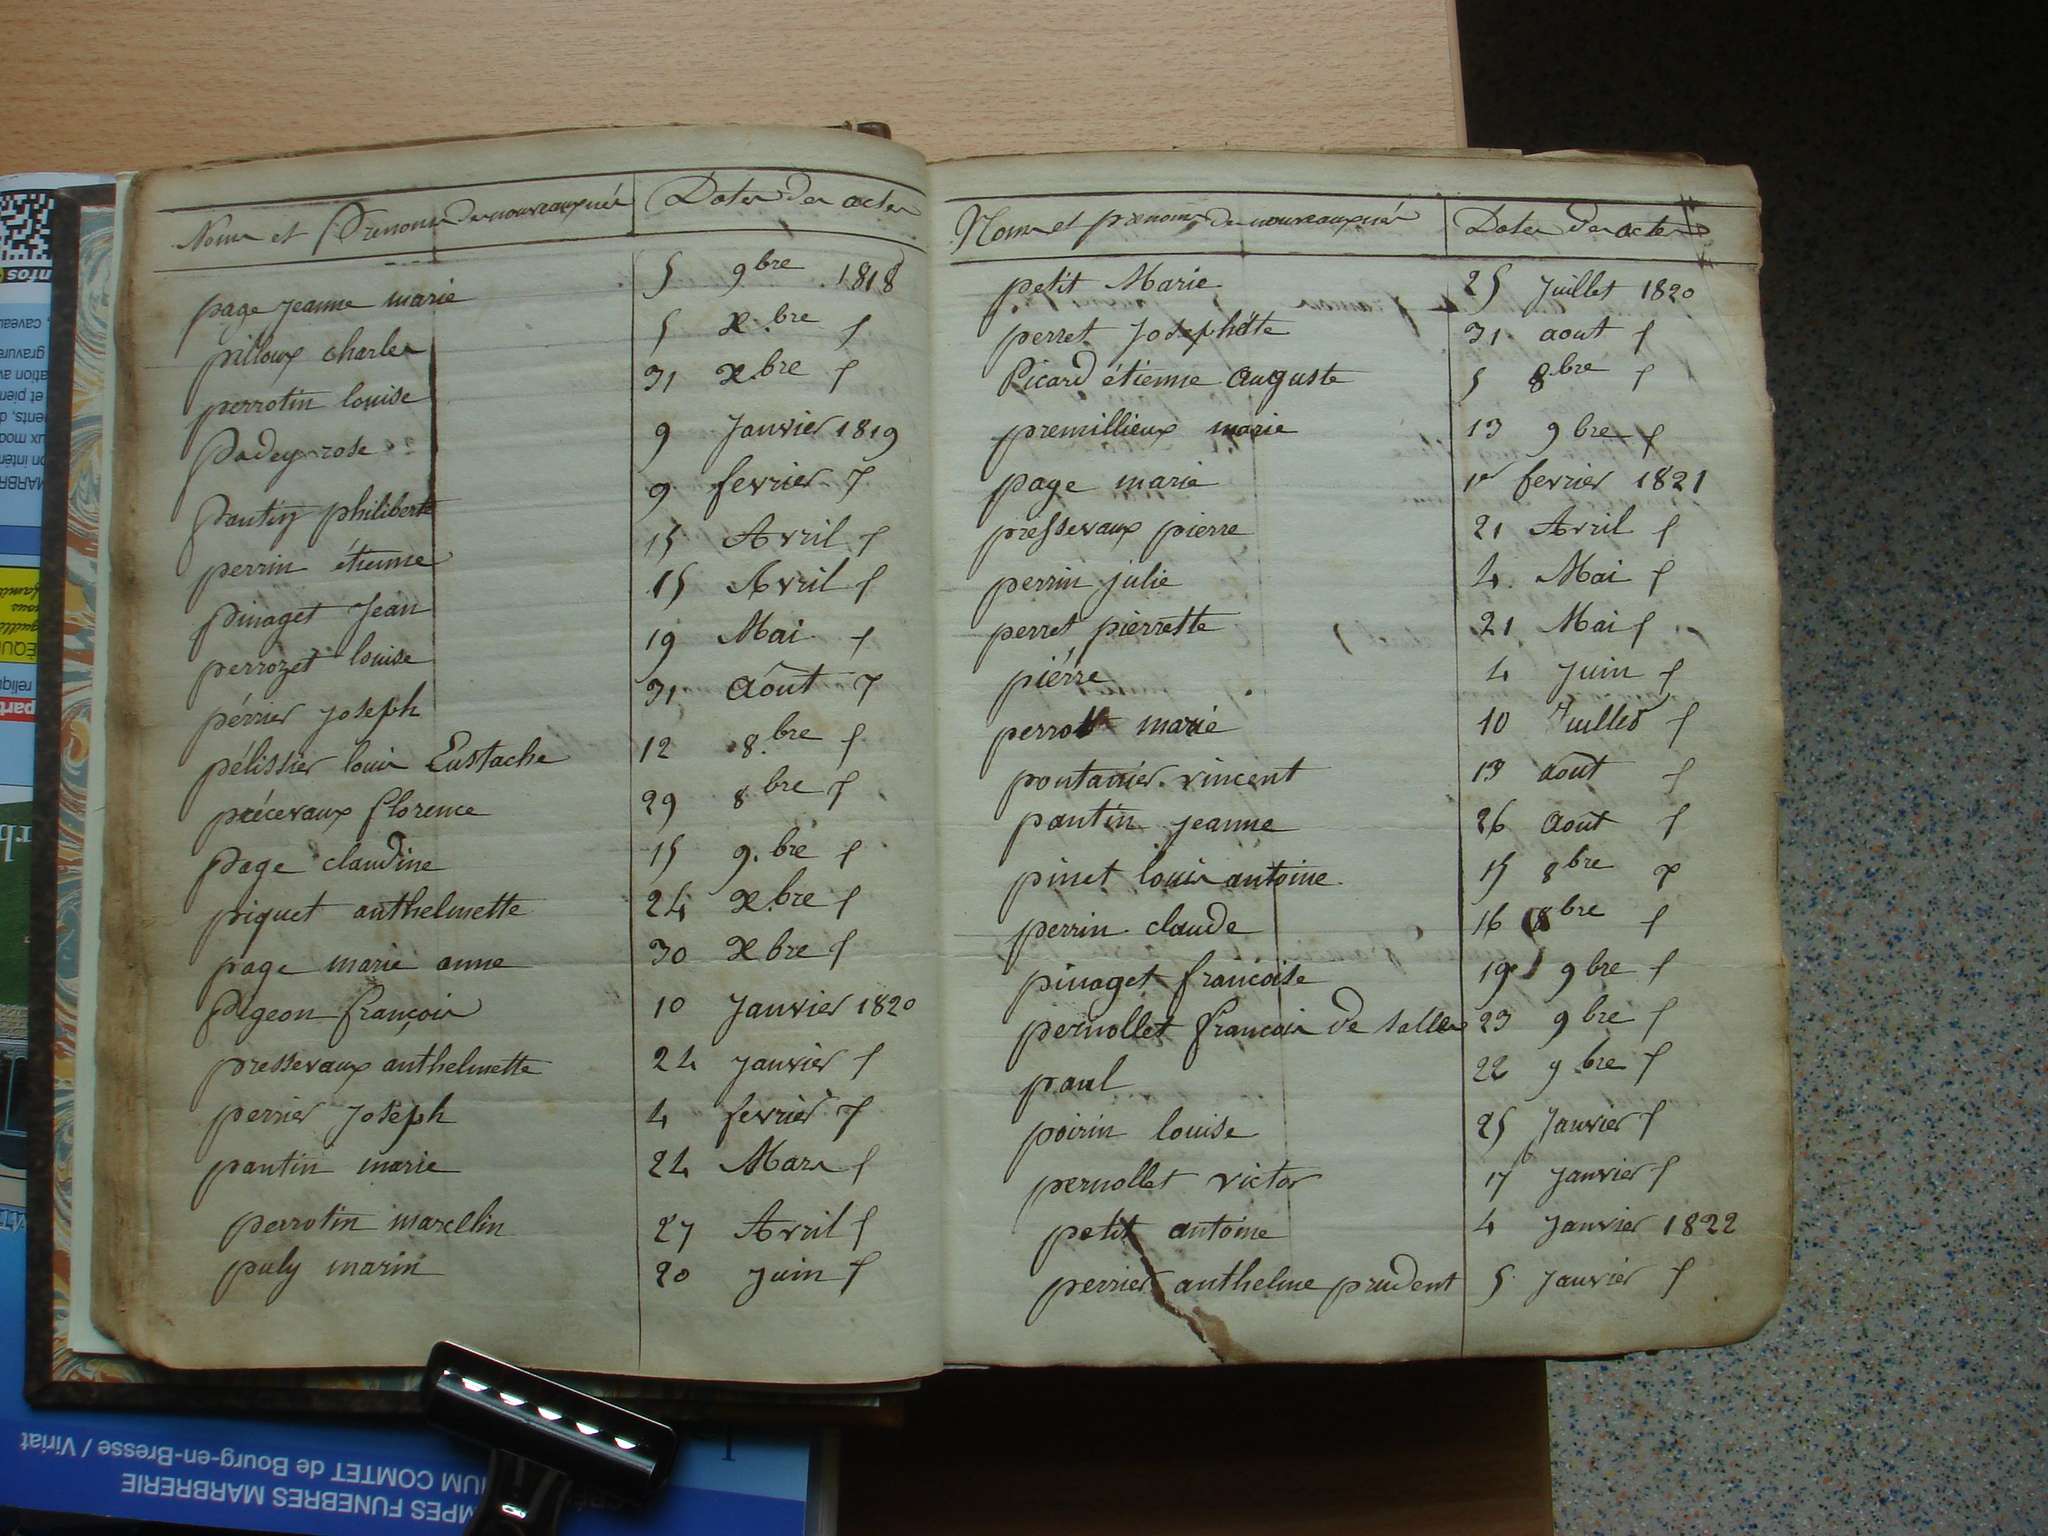 Noms et Prenoms des nouveaux nés Dates des actes
page jeanne marie 5 9bre 1818
pilloux charles 5 X.bre f
perrotin louise 31 X.bre f
Padey rose 9 Janvier 1819
Pantin philiberte 9 fevrier f
perrin étienne 15 Avril f
pinaget Jean 15 Avril f
perrozet louise 19 Mai f
périer Joseph 31 Août f
pélissier louis Eustache 12 8.bre f
précevaux florence 29 8bre f
page claudine 15 9.bre f
piquet anthelmette 24 X.bre f
page marie anne 30 Xbre f
Pigeon françois 10 Janvier 1820
pressevaux anthelmette 24 Janvier f
perrier Joseph 4 fevrier f
pantin marie 24 Mars f
perrotin marcellin 27 Avril f
puly marin 20 Juin f
Noms et prenoms des nouveaux nés Dates des actes
petit Marie 25 Juillet 1820
perret Josephte 31 aout f
Picard étienne Auguste 5 8bre f
premillieux marie 13 9bre f
page marie 1er fevrier 1821
pressevaux pierre 21 Avril f
perrin julie 4 Mai f
perret pierrette 21 Mai f
piérre 4 Juin f
marie 10 Juillet f
pontanier vincent 13 août f
pantin jeanne 26 Août f
pinet louis antoine 15 8bre f
perrin claude 16 8bre f
pinaget francoise 19 9bre f
pernollet francois de salles 23 9bre f
paul 22 9bre f
poirin louise 25 Janvier f
pernollet victor 17 Janvier f
petit antoine 4 Janvier 1822
perrier anthelme prudent 5 Janvier f
MPES FUNEBRES MARBRERIE
IUM COMTET de Bourg-en-Bresse / Viriat